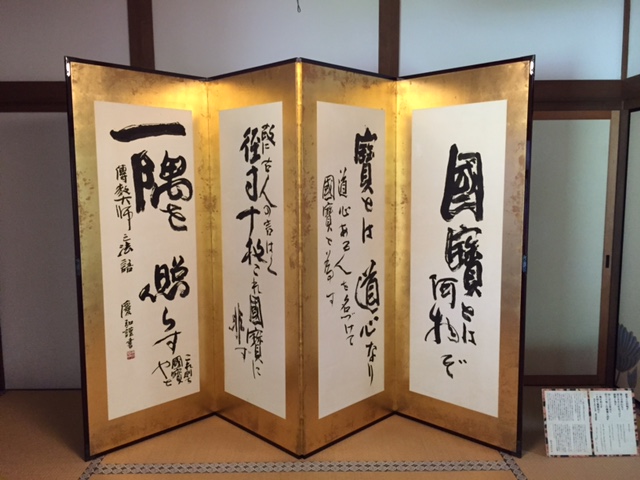 國寶とは
何物ぞ
寶とは道心なり
道心ある人を名づけて
國寶と為す
故に古人の言はく
径寸十枚これ國寶に
非ず
一隅を照らす
これ則
國寶
傳教大師之法語
謹書